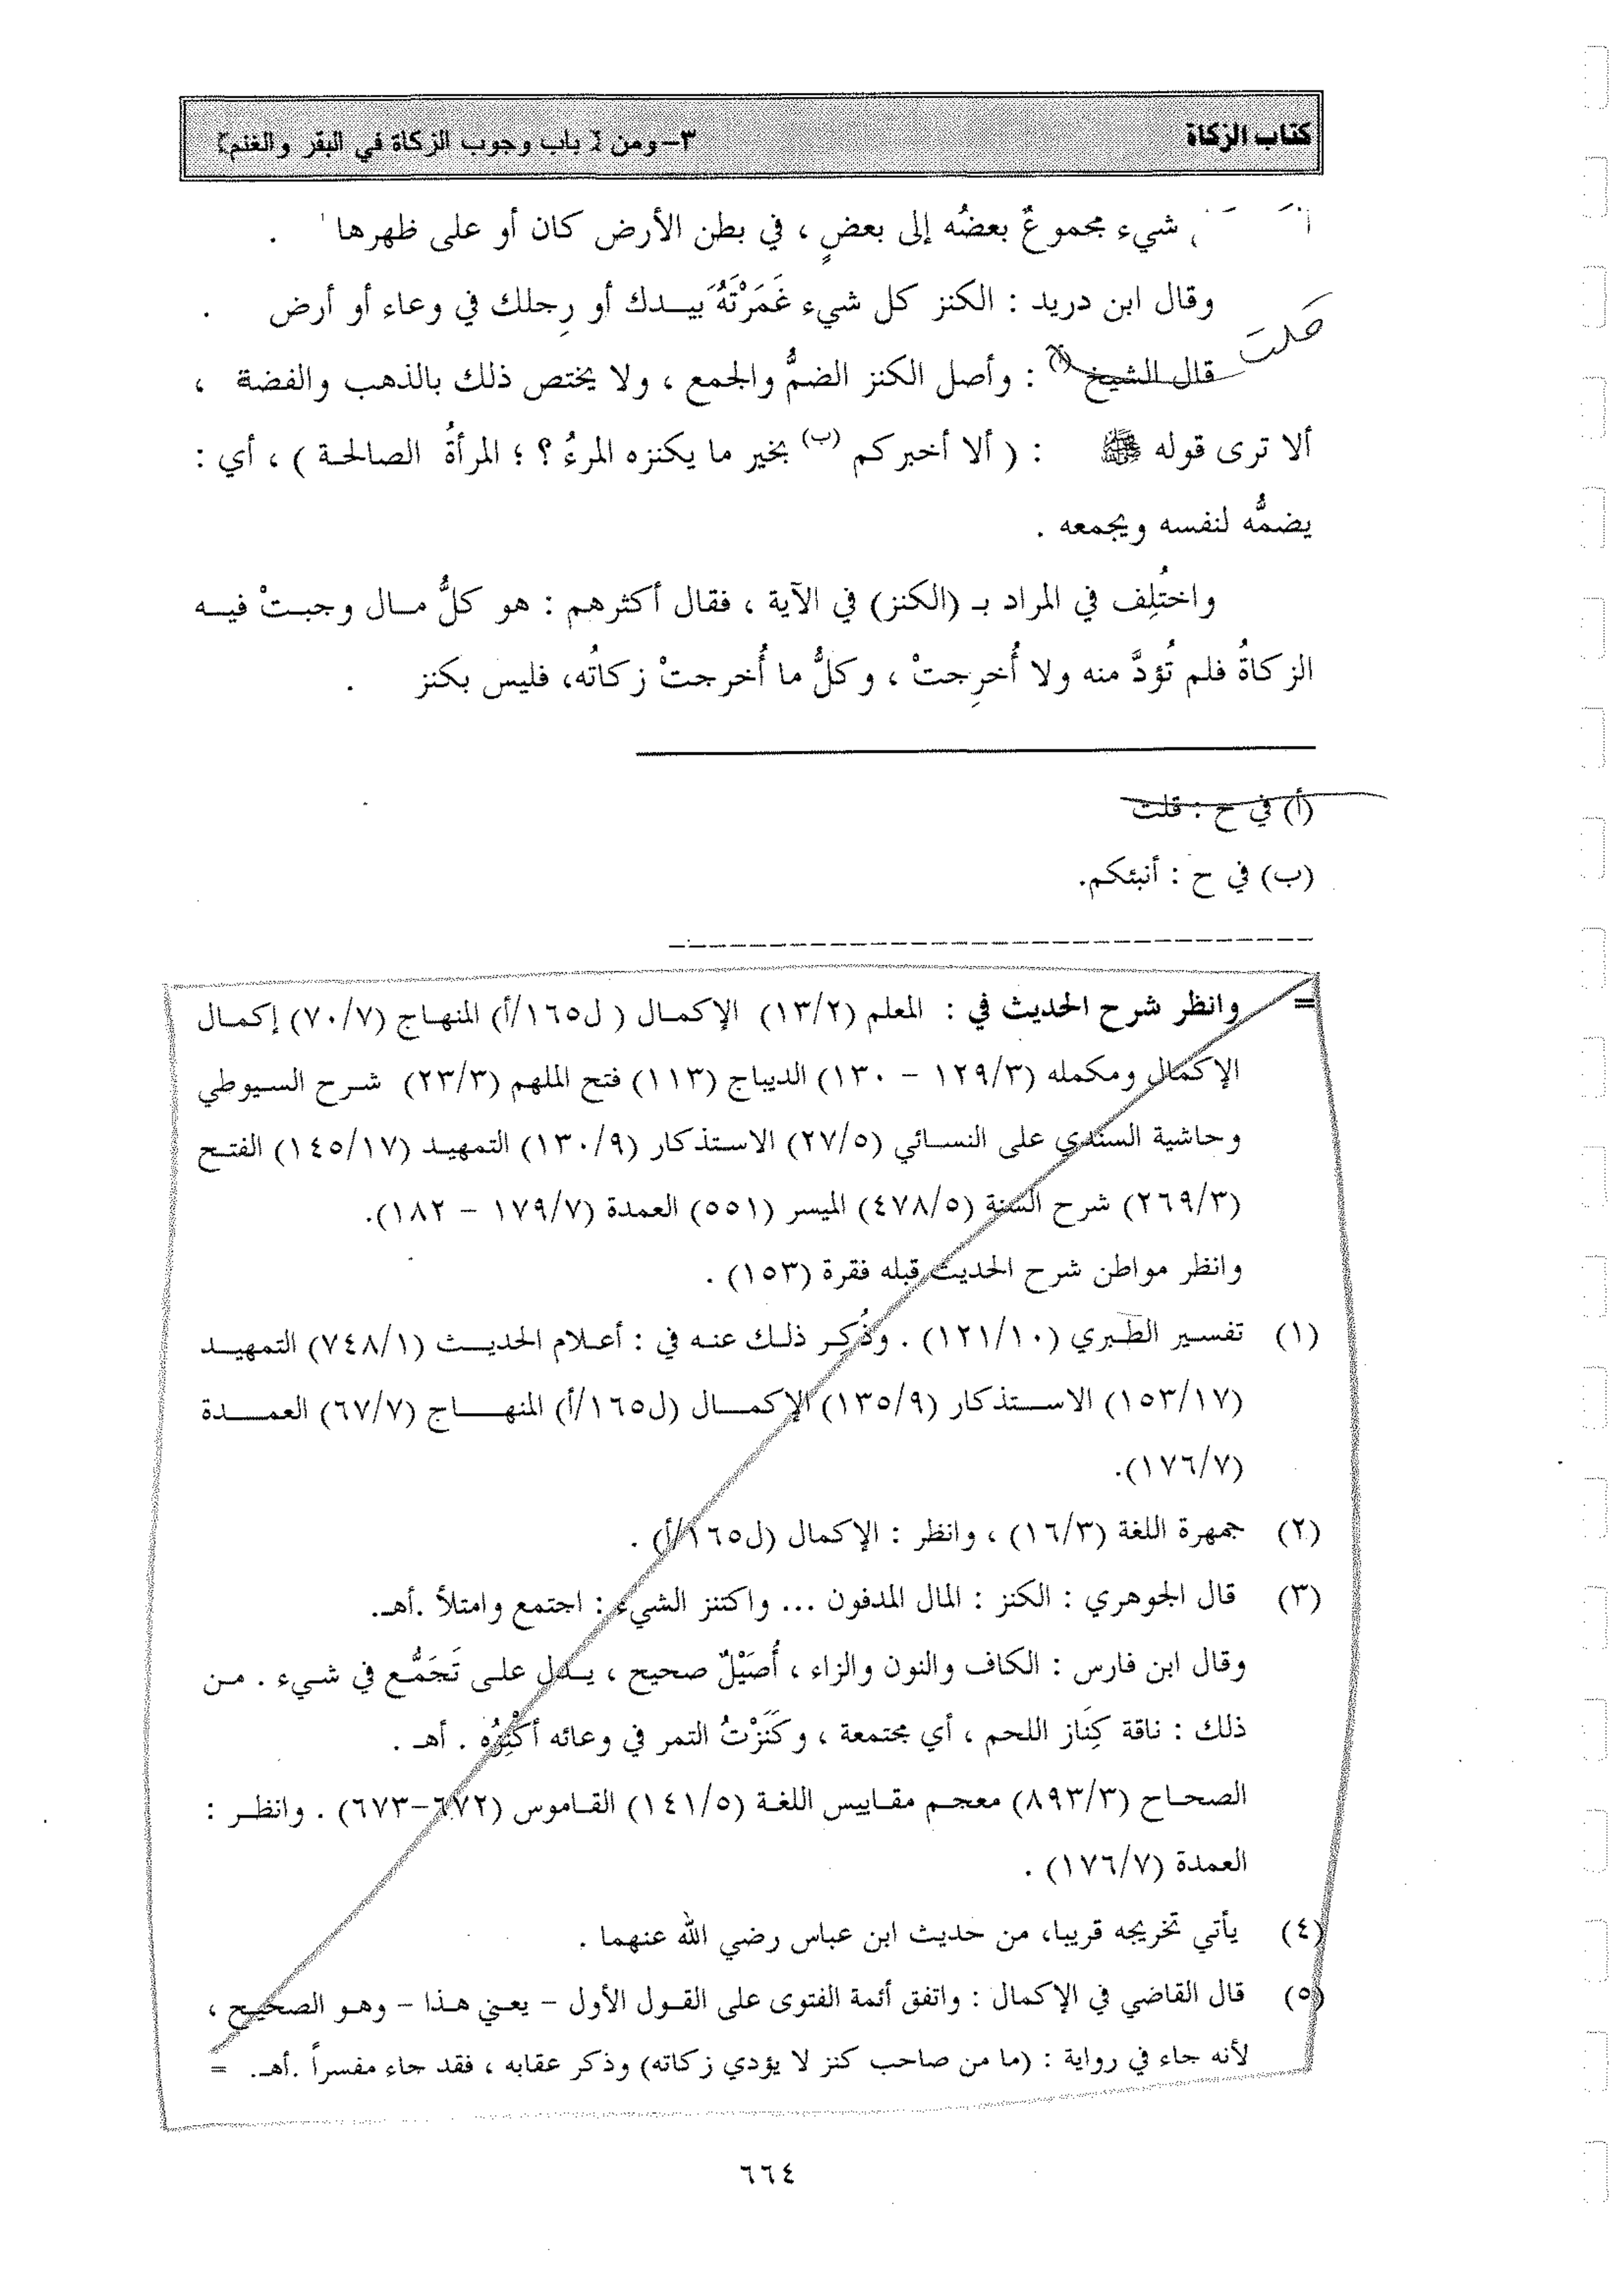 كتاب الزكاة
٣-ومن [ باب وجوب الزكاة في البقر والغنم]
شيء مجموعٌ بعضُه إلى بعضٍ ، في بطن الأرض كان أو على ظهرها .
وقال ابن دريد : الكنز كل شيء غَمَرْتَهُ بيــدك أو رِجلك في وعاء أو أرض .
قلت
قال الشيخ (أ) : وأصل الكنز الضمُّ والجمع ، ولا يختص ذلك بالذهب والفضة ،
ألا ترى قوله ﷺ : ( ألا أخبركم (ب) بخير ما يكنزه المرءُ ؟ ؛ المرأةُ الصالحـة ) ، أي :
يضمُّه لنفسه ويجمعه .
واختُلِف في المراد بـ (الكنز) في الآية ، فقال أكثرهم : هو كلُّ مـال وجبـتْ فيـه
الزكاةُ فلم تُؤدَّ منه ولا أُخرِجتْ ، وكلُّ ما أُخرجتْ زكاتُه، فليس بكنز .
(أ) في ح : قلت
(ب) في ح : أنبئكم.
= وانظر شرح الحديث في : المعلم (١٣/٢) الإكمـال ( ل١٦٥/أ) المنهـاج (٧٠/٧) إكمـال
الإكمال ومكمله (١٢٩/٣ – ١٣٠) الديباج (١١٣) فتح الملهم (٢٣/٣) شـرح السـيوطي
وحاشية السندي على النسـائي (٢٧/٥) الاسـتذكار (١٣٠/٩) التمهيـد (١٤٥/١٧) الفتـح
(٢٦٩/٣) شرح السنة (٤٧٨/٥) الميسر (٥٥١) العمدة (١٧٩/٧ – ١٨٢).
وانظر مواطن شرح الحديث قبله فقرة (١٥٣) .
(١) تفسـير الطـبري (١٢١/١٠) . وذُكِـر ذلـك عنـه في : أعـلام الحديـث (٧٤٨/١) التمهيـد
(١٥٣/١٧) الاسـتذكار (١٣٥/٩) الإكمـال (ل١٦٥/أ) المنهـاج (٦٧/٧) العمـدة
(١٧٦/٧).
(٢) جمهرة اللغة (١٦/٣) ، وانظر : الإكمال (ل١٦٥/أ) .
(٣) قال الجوهري : الكنز : المال المدفون ... واكتنز الشيء : اجتمع وامتلأ .أهـ.
وقال ابن فارس : الكاف والنون والزاء ، أُصَيْلٌ صحيح ، يـدل علـى تَجَمُّـع في شـيء . مـن
ذلك : ناقة كِنَاز اللحم ، أي مجتمعة ، وكَنَزْتُ التمر في وعائه أكْنِزُه . أهـ .
الصحـاح (٨٩٣/٣) معجـم مقـاييس اللغـة (١٤١/٥) القـاموس (٦٧٢–٦٧٣) . وانظـر :
العمدة (١٧٦/٧) .
(٤) يأتي تخريجه قريبا، من حديث ابن عباس رضي الله عنهما .
(٥) قال القاضي في الإكمال : واتفق أئمة الفتوى على القـول الأول – يعـني هـذا – وهـو الصحيـح ،
لأنه جاء في رواية : (ما من صاحب كنز لا يؤدي زكاته) وذكر عقابه ، فقد جاء مفسراً .أهـ. =
٦٦٤